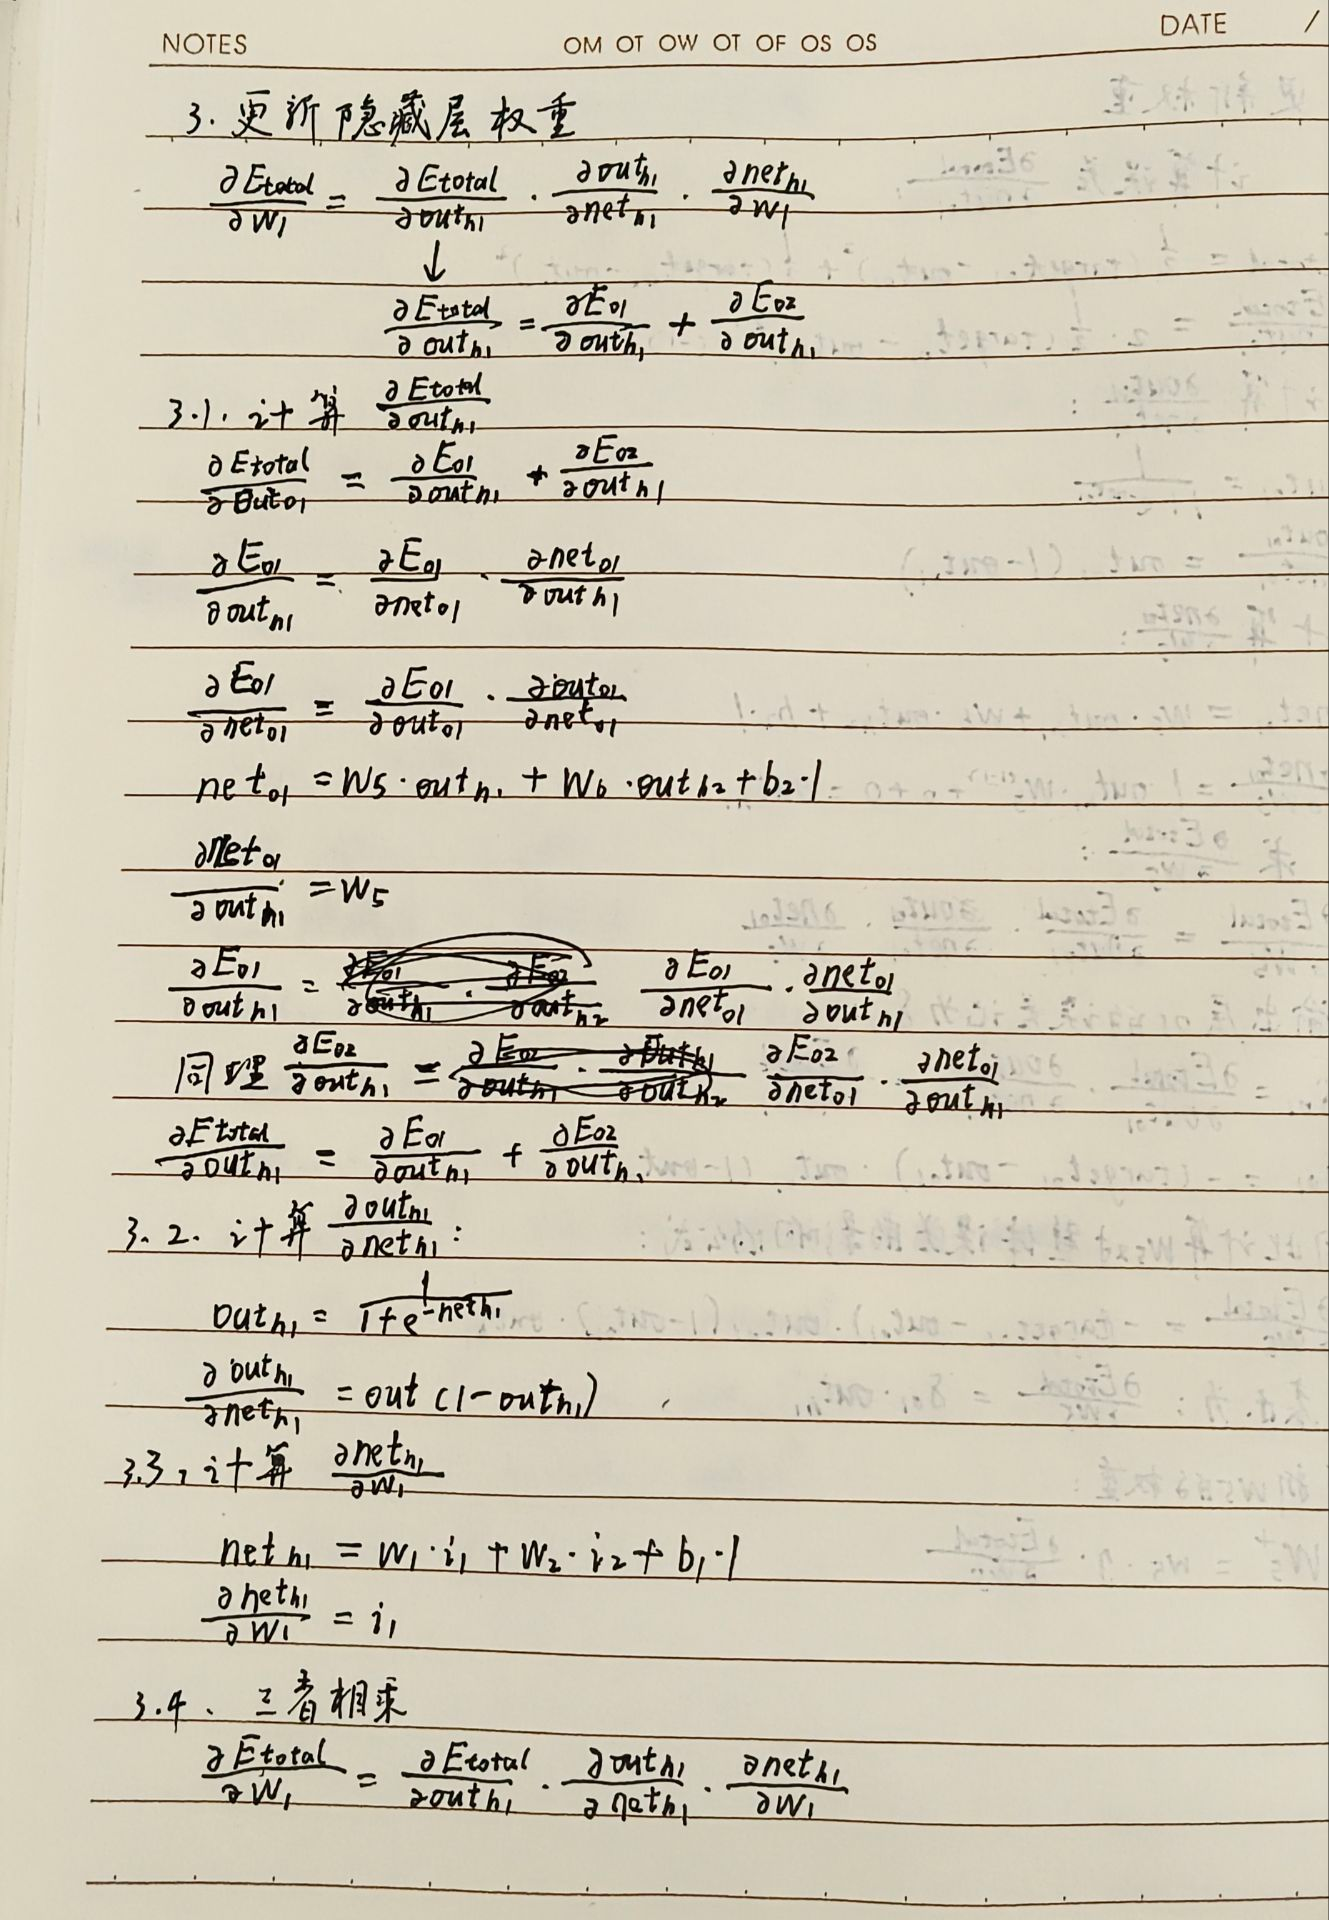 NOTES OM OT OW OT OF OS OS DATE /
3. 更新隐藏层权重
∂Etotal/∂W1 = ∂Etotal/∂outh1 · ∂outh1/∂neth1 · ∂neth1/∂W1
↓
∂Etotal/∂outh1 = ∂E01/∂outh1 + ∂E02/∂outh1
3.1. 计算 ∂Etotal/∂outh1
∂Etotal/∂Out01 = ∂E01/∂outh1 + ∂E02/∂outh1
∂E01/∂outh1 = ∂E01/∂net01 · ∂net01/∂outh1
∂E01/∂net01 = ∂E01/∂out01 · ∂out01/∂net01
net01 = W5·outh1 + W6·outh2 + b2·1
∂net01/∂outh1 = W5
∂E01/∂outh1 = ∂E01/∂net01 · ∂net01/∂outh1
同理 ∂E02/∂outh1 = ∂E02/∂net01 · ∂net01/∂outh1
∂Etotal/∂outh1 = ∂E01/∂outh1 + ∂E02/∂outh1
3.2. 计算 ∂outh1/∂neth1 :
outh1 = 1/1+e^-neth1
∂outh1/∂neth1 = out (1-outh1)
3.3, 计算 ∂neth1/∂W1
neth1 = W1·i1 + W2·i2 + b1·1
∂neth1/∂W1 = i1
3.4、三者相乘
∂Etotal/∂W1 = ∂Etotal/∂outh1 · ∂outh1/∂neth1 · ∂neth1/∂W1